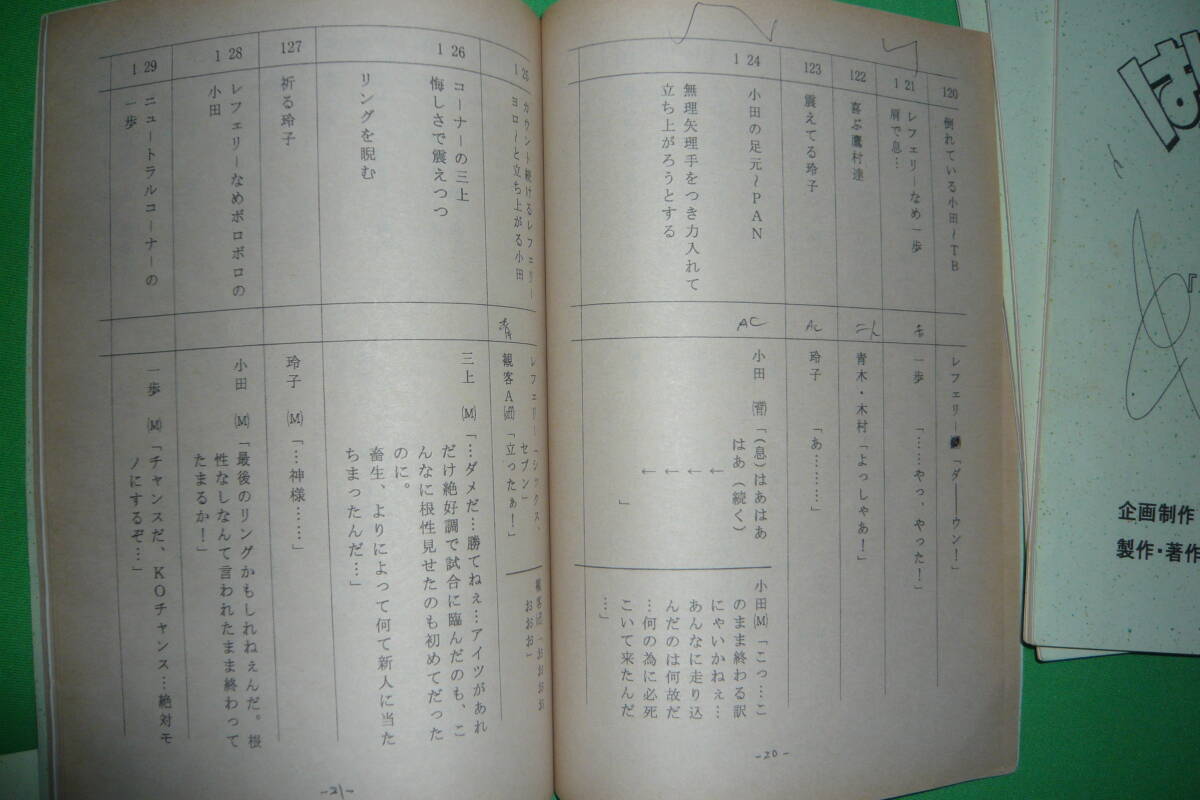 120
倒れている小田〜TB
レフェリー「ダ――ウン!」
121
レフェリーなめ一歩
肩で息…
一歩 「……やっ、やった!」
122
喜ぶ鷹村達
青木・木村「よっしゃあ!」
123
震えてる玲子
AC
玲子 「あ………」
124
小田の足元〜PAN
無理矢理手をつき力入れて
立ち上がろうとする
AC
小田 (背)「(息)はあはあ
はあ(続く)
←
←
←
←
」
小田(M)「こっ…こ
のまま終わる訳
にゃいかねぇ…
あんなに走り込
んだのは何故だ
…何の為に必死
こいて来たんだ
…」
-20-
125
カウント続けるレフェリー
ヨロ〜と立ち上がる小田
レフェリー「シックス、
セブン」
観客A(出)「立ったぁ!」
おおお」
126
コーナーの三上
悔しさで震えつつ
リングを睨む
三上 (M)「…ダメだ…勝てねぇ…アイツがあれ
だけ絶好調で試合に臨んだのも、こ
んなに根性見せたのも初めてだった
のに。
畜生、よりによって何て新人に当た
ちまったんだ…」
127
祈る玲子
玲子 (M)「…神様……」
128
レフェリーなめボロボロの
小田
小田 (M)「最後のリングかもしれねぇんだ。根
性なしなんて言われたまま終わって
たまるか!」
129
ニュートラルコーナーの
一歩
一歩 (M)「チャンスだ、KOチャンス…絶対モ
ノにするぞ…」
-21-
は
企画制作
製作・著作